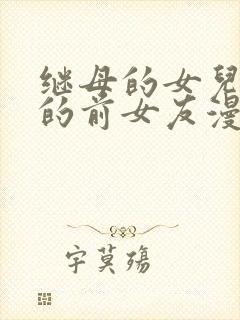 继母的女兒
的前女友漫
字莫殇